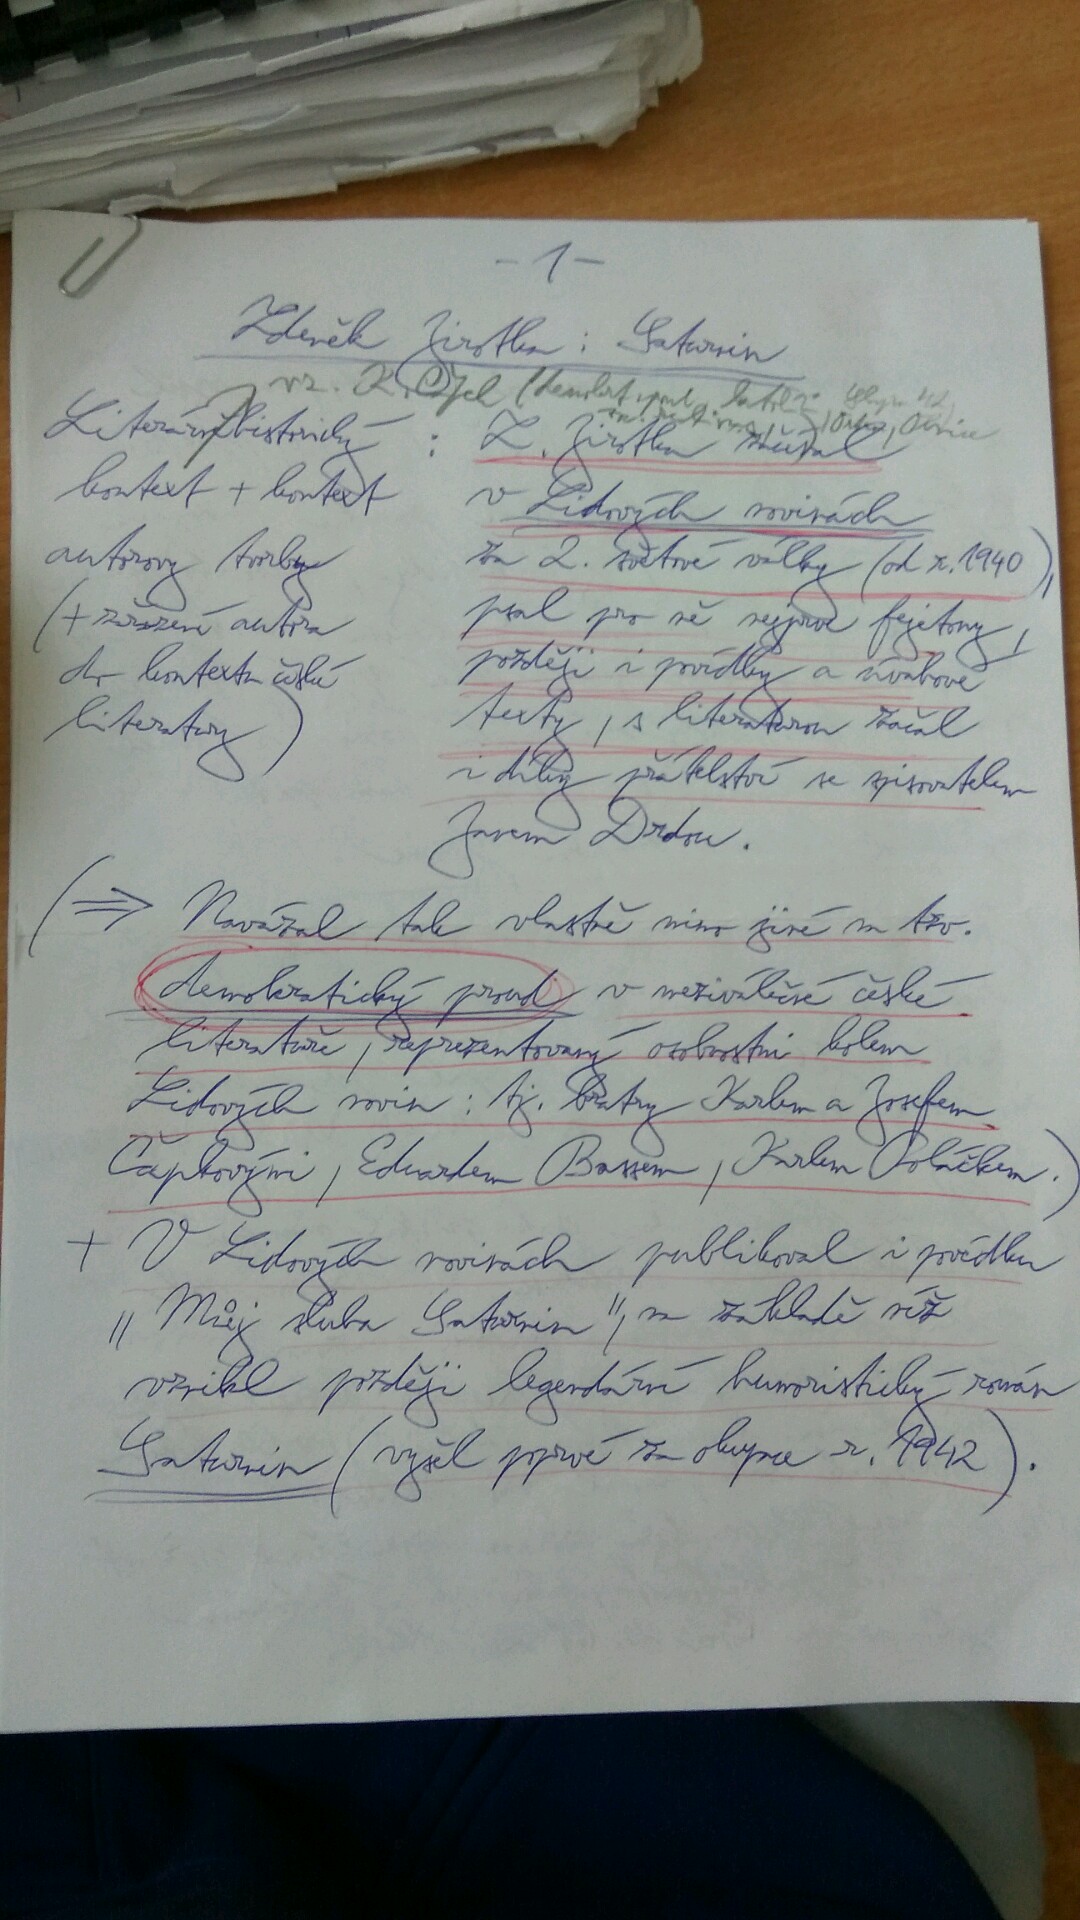 - 1 -
Zdeněk Jirotka : Saturnin
vz. K. Č
Literárněhistorický
kontext + kontext
autorovy tvorby
(+ zařazení autora
do kontextu české
literatury)
: Z. Jirotka
v Lidových novinách
za 2. světové války (od r. 1940),
psal pro ně nejprve fejetony,
později i povídky a úvahové
texty, s literaturou začal
i díky přátelství se spisovatelem
Janem Drdou.
(⇒ Navázal tak vlastně mimo jiné na tzv.
demokratický proud v meziválečné české
literatuře, reprezentovaný osobnostmi kolem
Lidových novin : tj. bratry Karlem a Josefem
Čapkovými, Eduardem Bassem, Karlem Poláčkem.)
+ V Lidových novinách publikoval i povídku
„Můj sluha Saturnin", na základě níž
vznikl později legendární humoristický román
Saturnin (vyšel poprvé za okupace r. 1942).